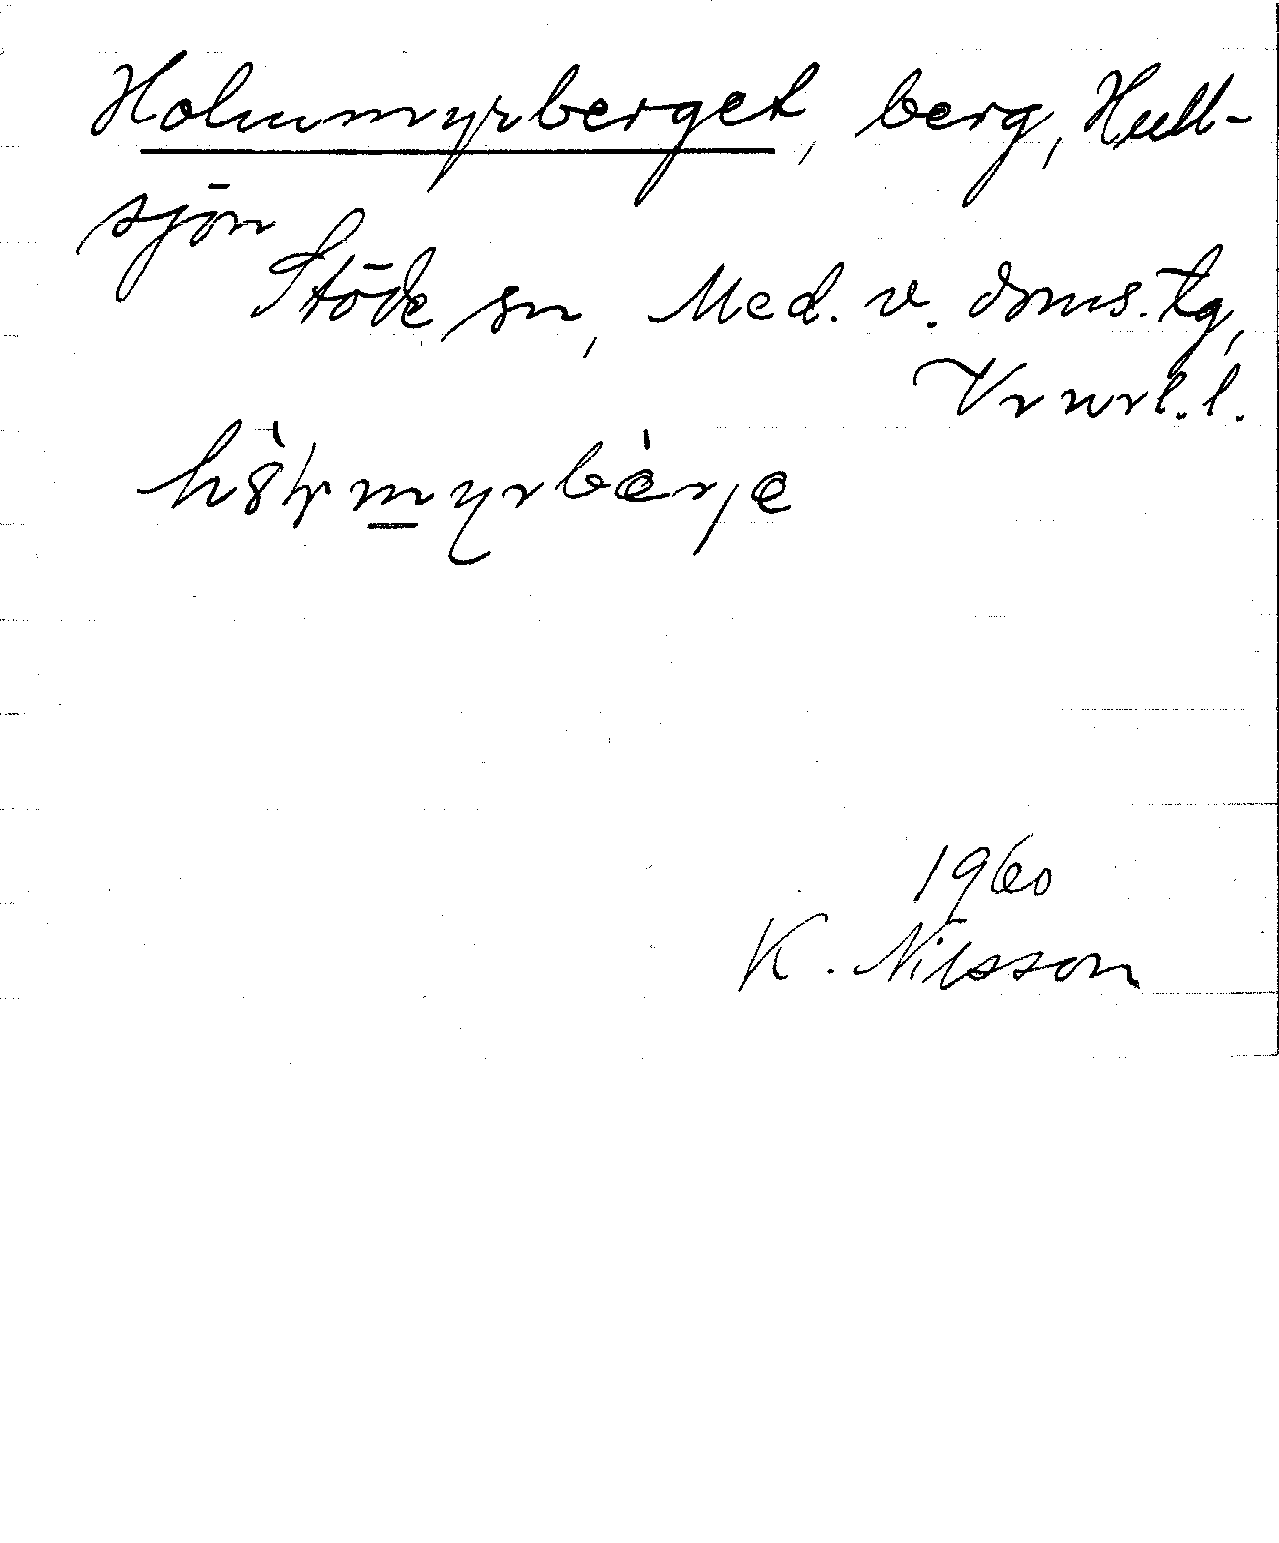 Holmmyrberget, berg, Hull-
sjön
Stöde sn, Med. v. doms.tg,
Vrnrl. l.
1960
K. Nilsson